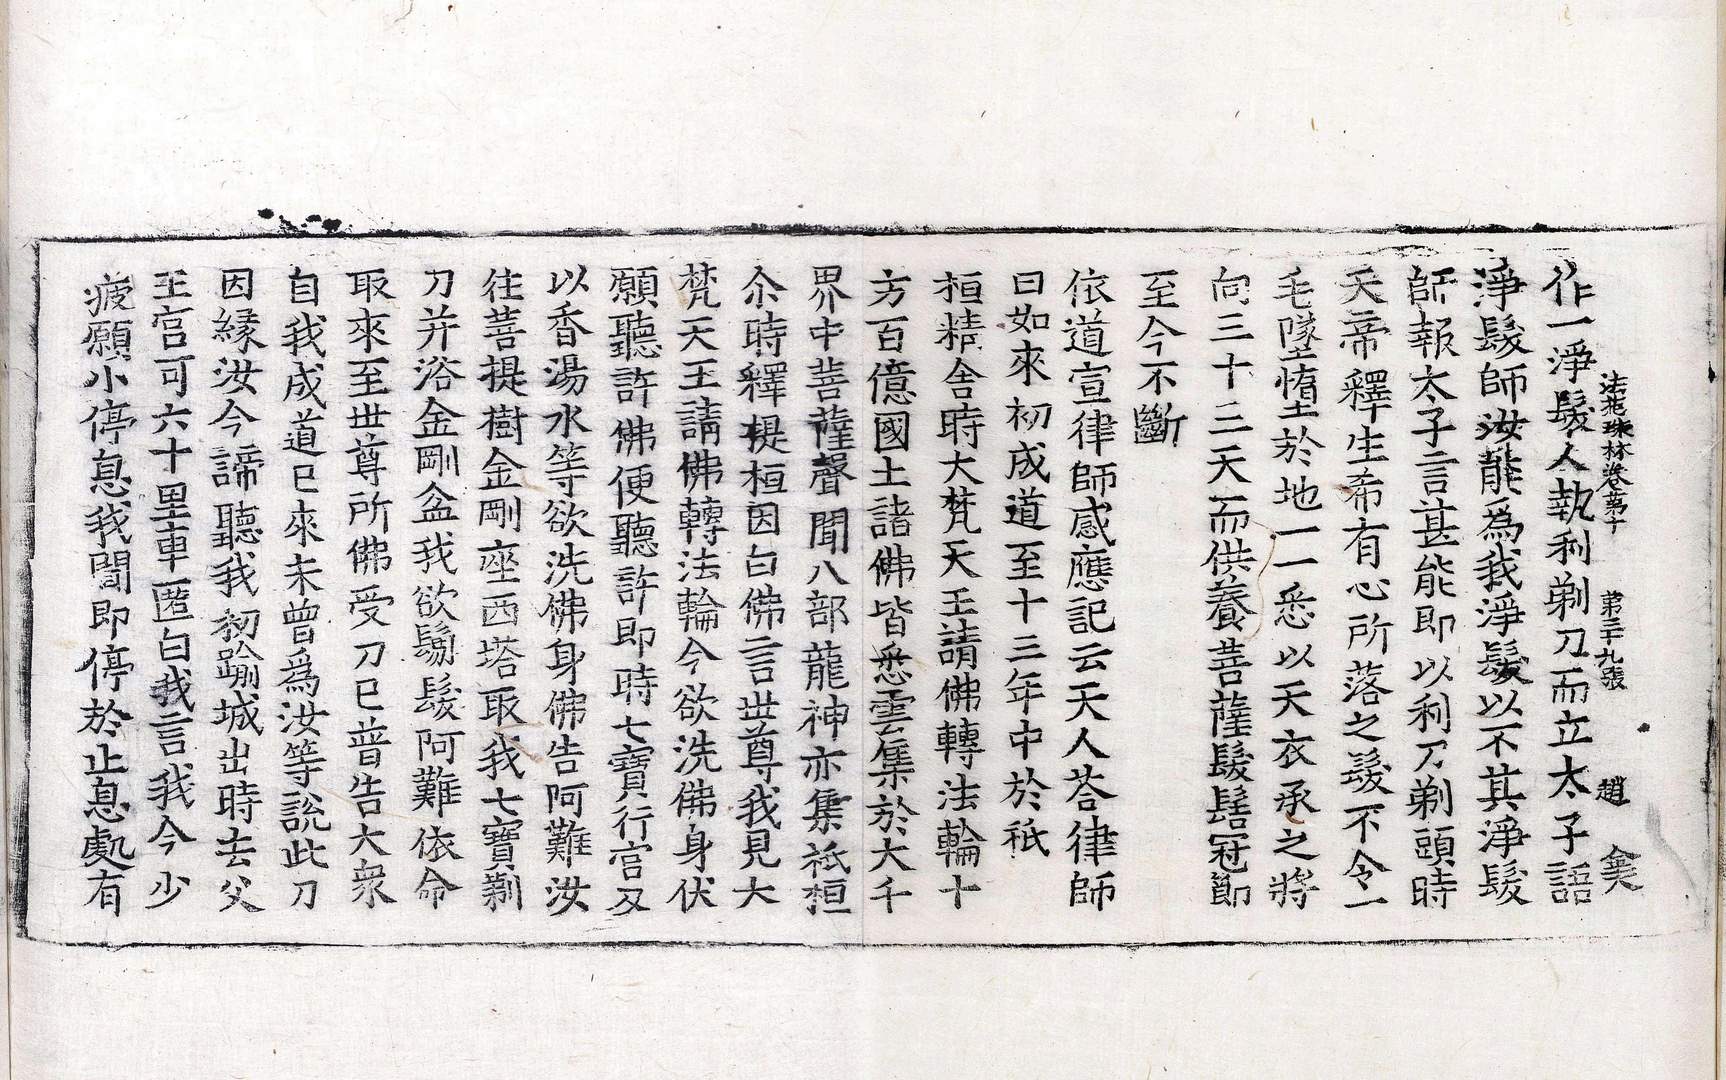 法苑珠林卷第十　第三十九張　趙
作一淨髮人執利剃刀而立太子語
淨髮師汝能爲我淨髮以不其淨髮
師報太子言甚能即以利刀剃頭時
天帝釋生希有心所落之髮不令一
毛墜墮於地一一悉以天衣承之將
向三十三天而供養菩薩髮髻冠節
至今不斷
依道宣律師感應記云天人荅律師
曰如來初成道至十三年中於祇
桓精舍時大梵天王請佛轉法輪十
方百億國土諸佛皆悉雲集於大千
界中菩薩聲聞八部龍神亦集祇桓
尒時釋提桓因白佛言世尊我見大
梵天王請佛轉法輪今欲洗佛身伏
願聽許佛便聽許即時七寶行宮及
以香湯水等欲洗佛身佛告阿難汝
往菩提樹金剛座西塔取我七寶剃
刀并浴金剛盆我欲鬀髮阿難依命
取來至世尊所佛受刀已普告大衆
自我成道已來未曾爲汝等說此刀
因緣汝今諦聽我初踰城出時去父
王宮可六十里車匿白我言我今少
疲願小停息我聞即停於止息處有